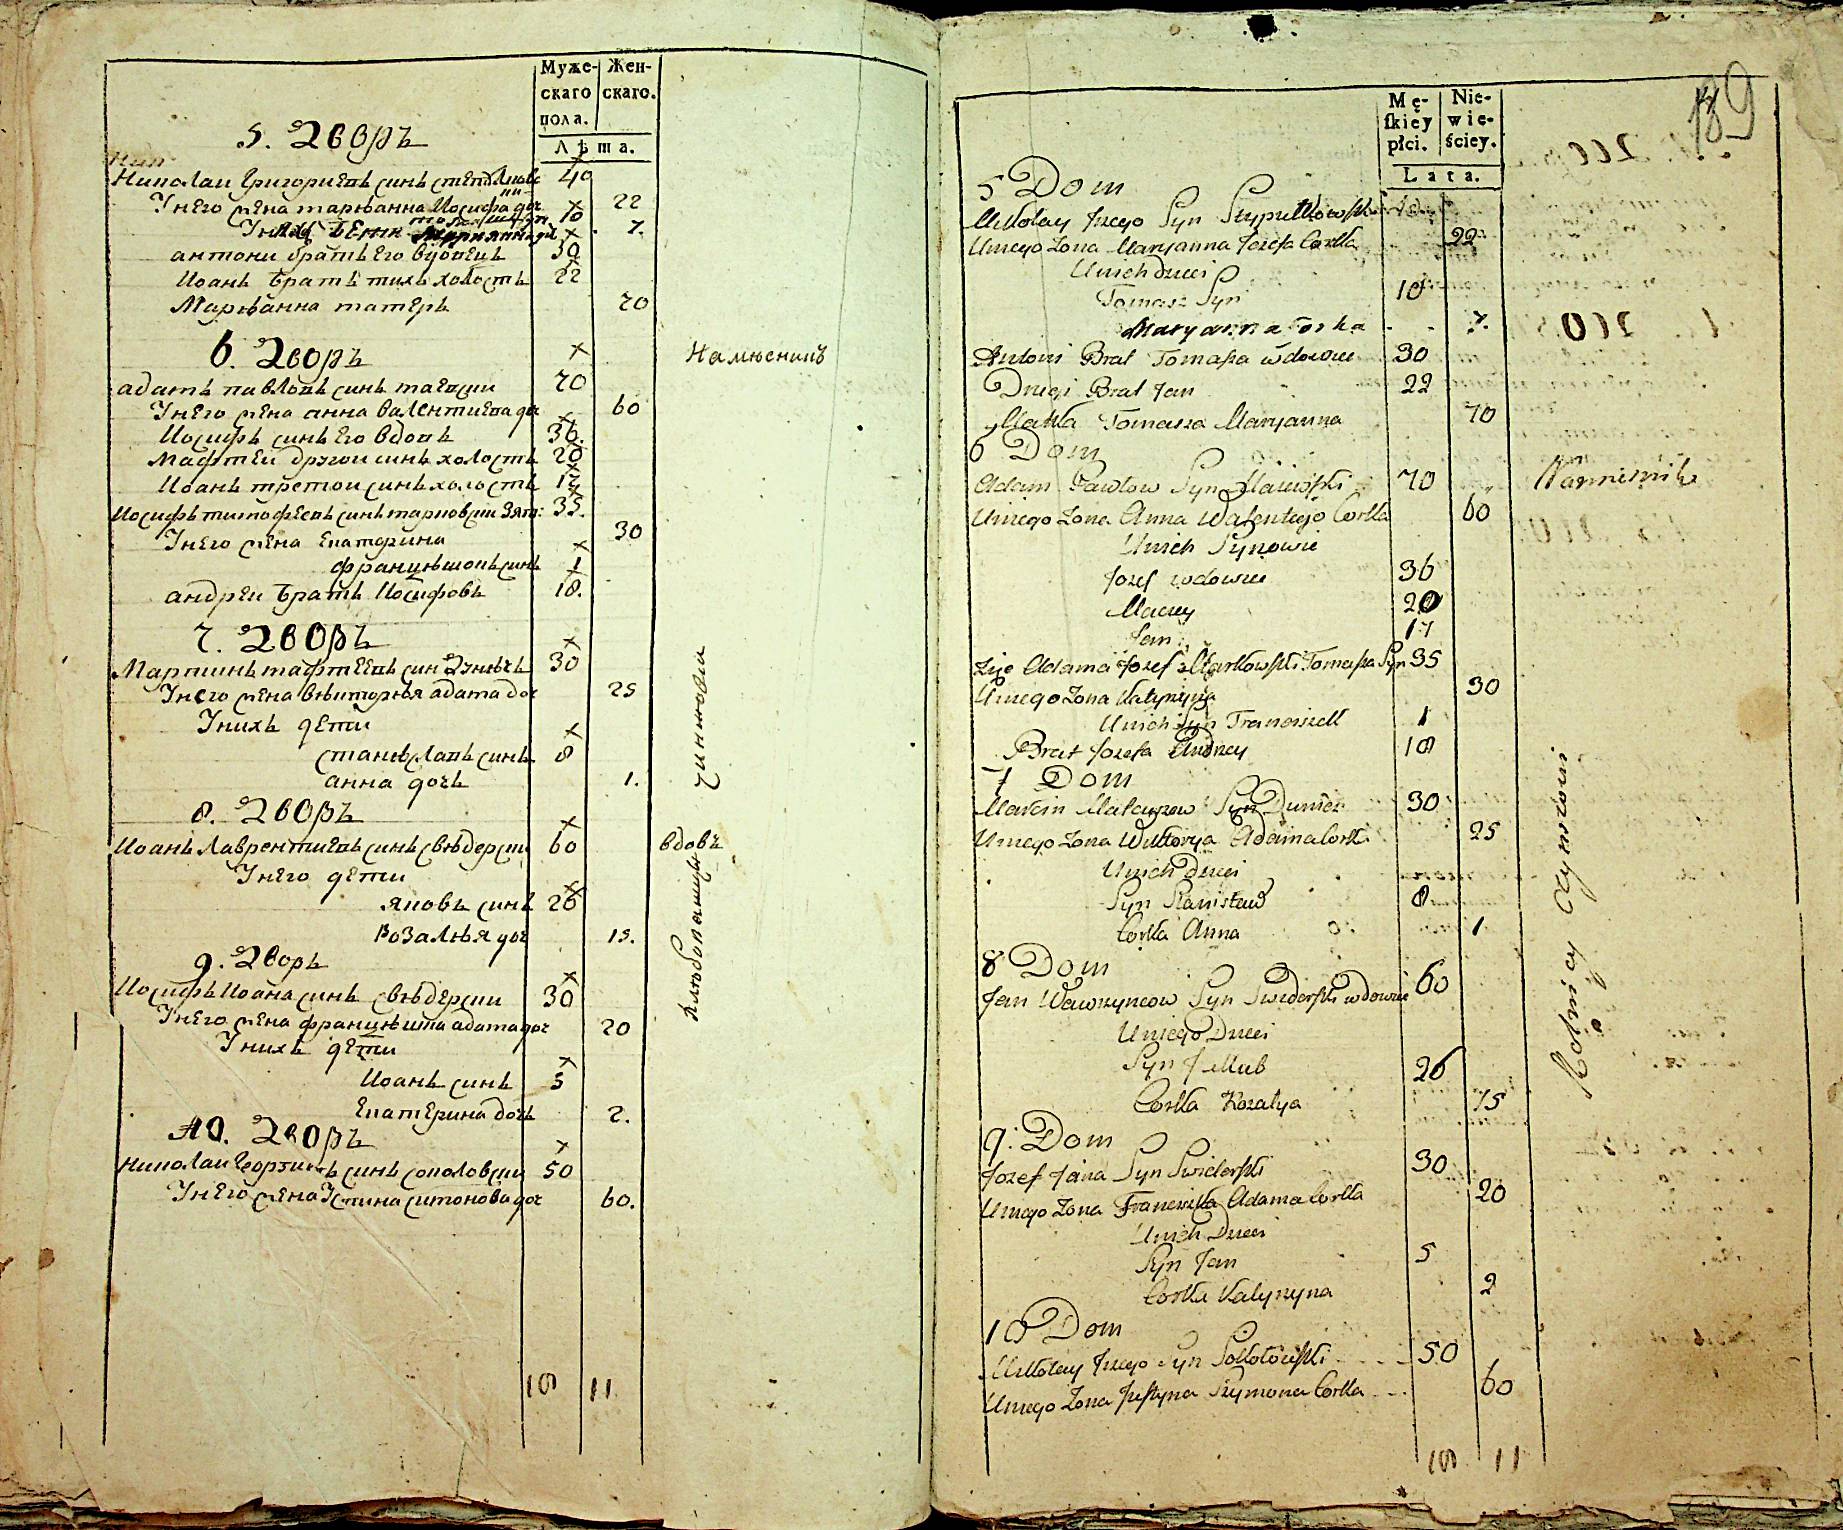 Муже- Жен-
скаго скаго.
пола.
Лѣта.
5. Дворъ
Николаи Григориевъ синъ 40
У него жена марьанна Иосифа доч 22
10
У них 7.
антони братъ его вдовецъ 30
Иоанъ братъ тихъ холостъ 22
Марьанна матеръ 70
6. Дворъ
адамъ павловъ синъ маевски 70
У него жена анна валентиева доч 60
Иосифъ синъ его вдовъ 36.
Мафтеи другои синъ холостъ 20
Иоанъ третои синъ холостъ 17
Иосифъ тимофеевъ синъ марковски зят: 35.
У него жена Екатерина 30
францишокъ синъ 1
андреи братъ Иосифовъ 18.
7. Дворъ
Мартинъ мафтеевъ син 30
У него жена викторья адама доч 25
У нихъ дети
станиславъ синъ 8
анна дочъ 1.
8. Дворъ
Иоанъ Лаврентиевъ синъ свидерски 60 вдовъ
У него дети
яковъ синъ 26
Розалья доч 15.
9. Дворъ
Иосифъ Иоана синъ свидерски 30
У него жена францишка адама доч 20
У нихъ дети
Иоанъ синъ 5
Екатерина дочъ 2.
10. Дворъ
Николаи синъ соколовски 50
У него жена Устина симонова доч 60.
19 11
чиншови
хлѣбопашцы
189
Mę- Nie-
ſkiey wie-
płci. ściey.
Lata.
5 Dom
Mikołay Jrzego Syn Szypulkowski 40
U niego Zona Maryanna Jozefa Corka 22
U nich Dzieci
Tomasz Syn 10
Maryanna Corka 7.
Antoni Brat Tomasza wdowiec 30
Drugi Brat Jan 22
Matka Tomasza Maryanna 70
6 Dom
Adam Pawłow Syn Maiewski 70
U niego Zona Anna Walentego Corka 60
U nich Synowie
Jozef wdowiec 36
Maciey 20
Jan 17
Zięć Adama Jozef Markowski Tomasza Syn 35
U niego Zona Katyrzyna 30
U nich Syn Franciszek 1
Brat Jozefa Andrzey 18
7 Dom
Marcin Mateuszow Syn Duniec 30
U niego Zona Wiktorya Adama Cork 25
U nich Dzieci
Syn Stanisław 8
Corka Anna 1
8 Dom
Jan Wawrzyncow Syn Swiderski wdowiec 60
U niego Dzieci
Syn Jakub 26
Corka Rozalya 15
9. Dom
Jozef Jana Syn Swiderski 30
U niego Zona Franciszka Adama Corka 20
U nich Dzieci
Syn Jan 5
Corka Katyrzyna 2
10 Dom
Mikołay Jrzego Syn Sokołowski 50
U niego Zona Justyna Szymona Corka 60
19 11
Rolnicy Czynszowi